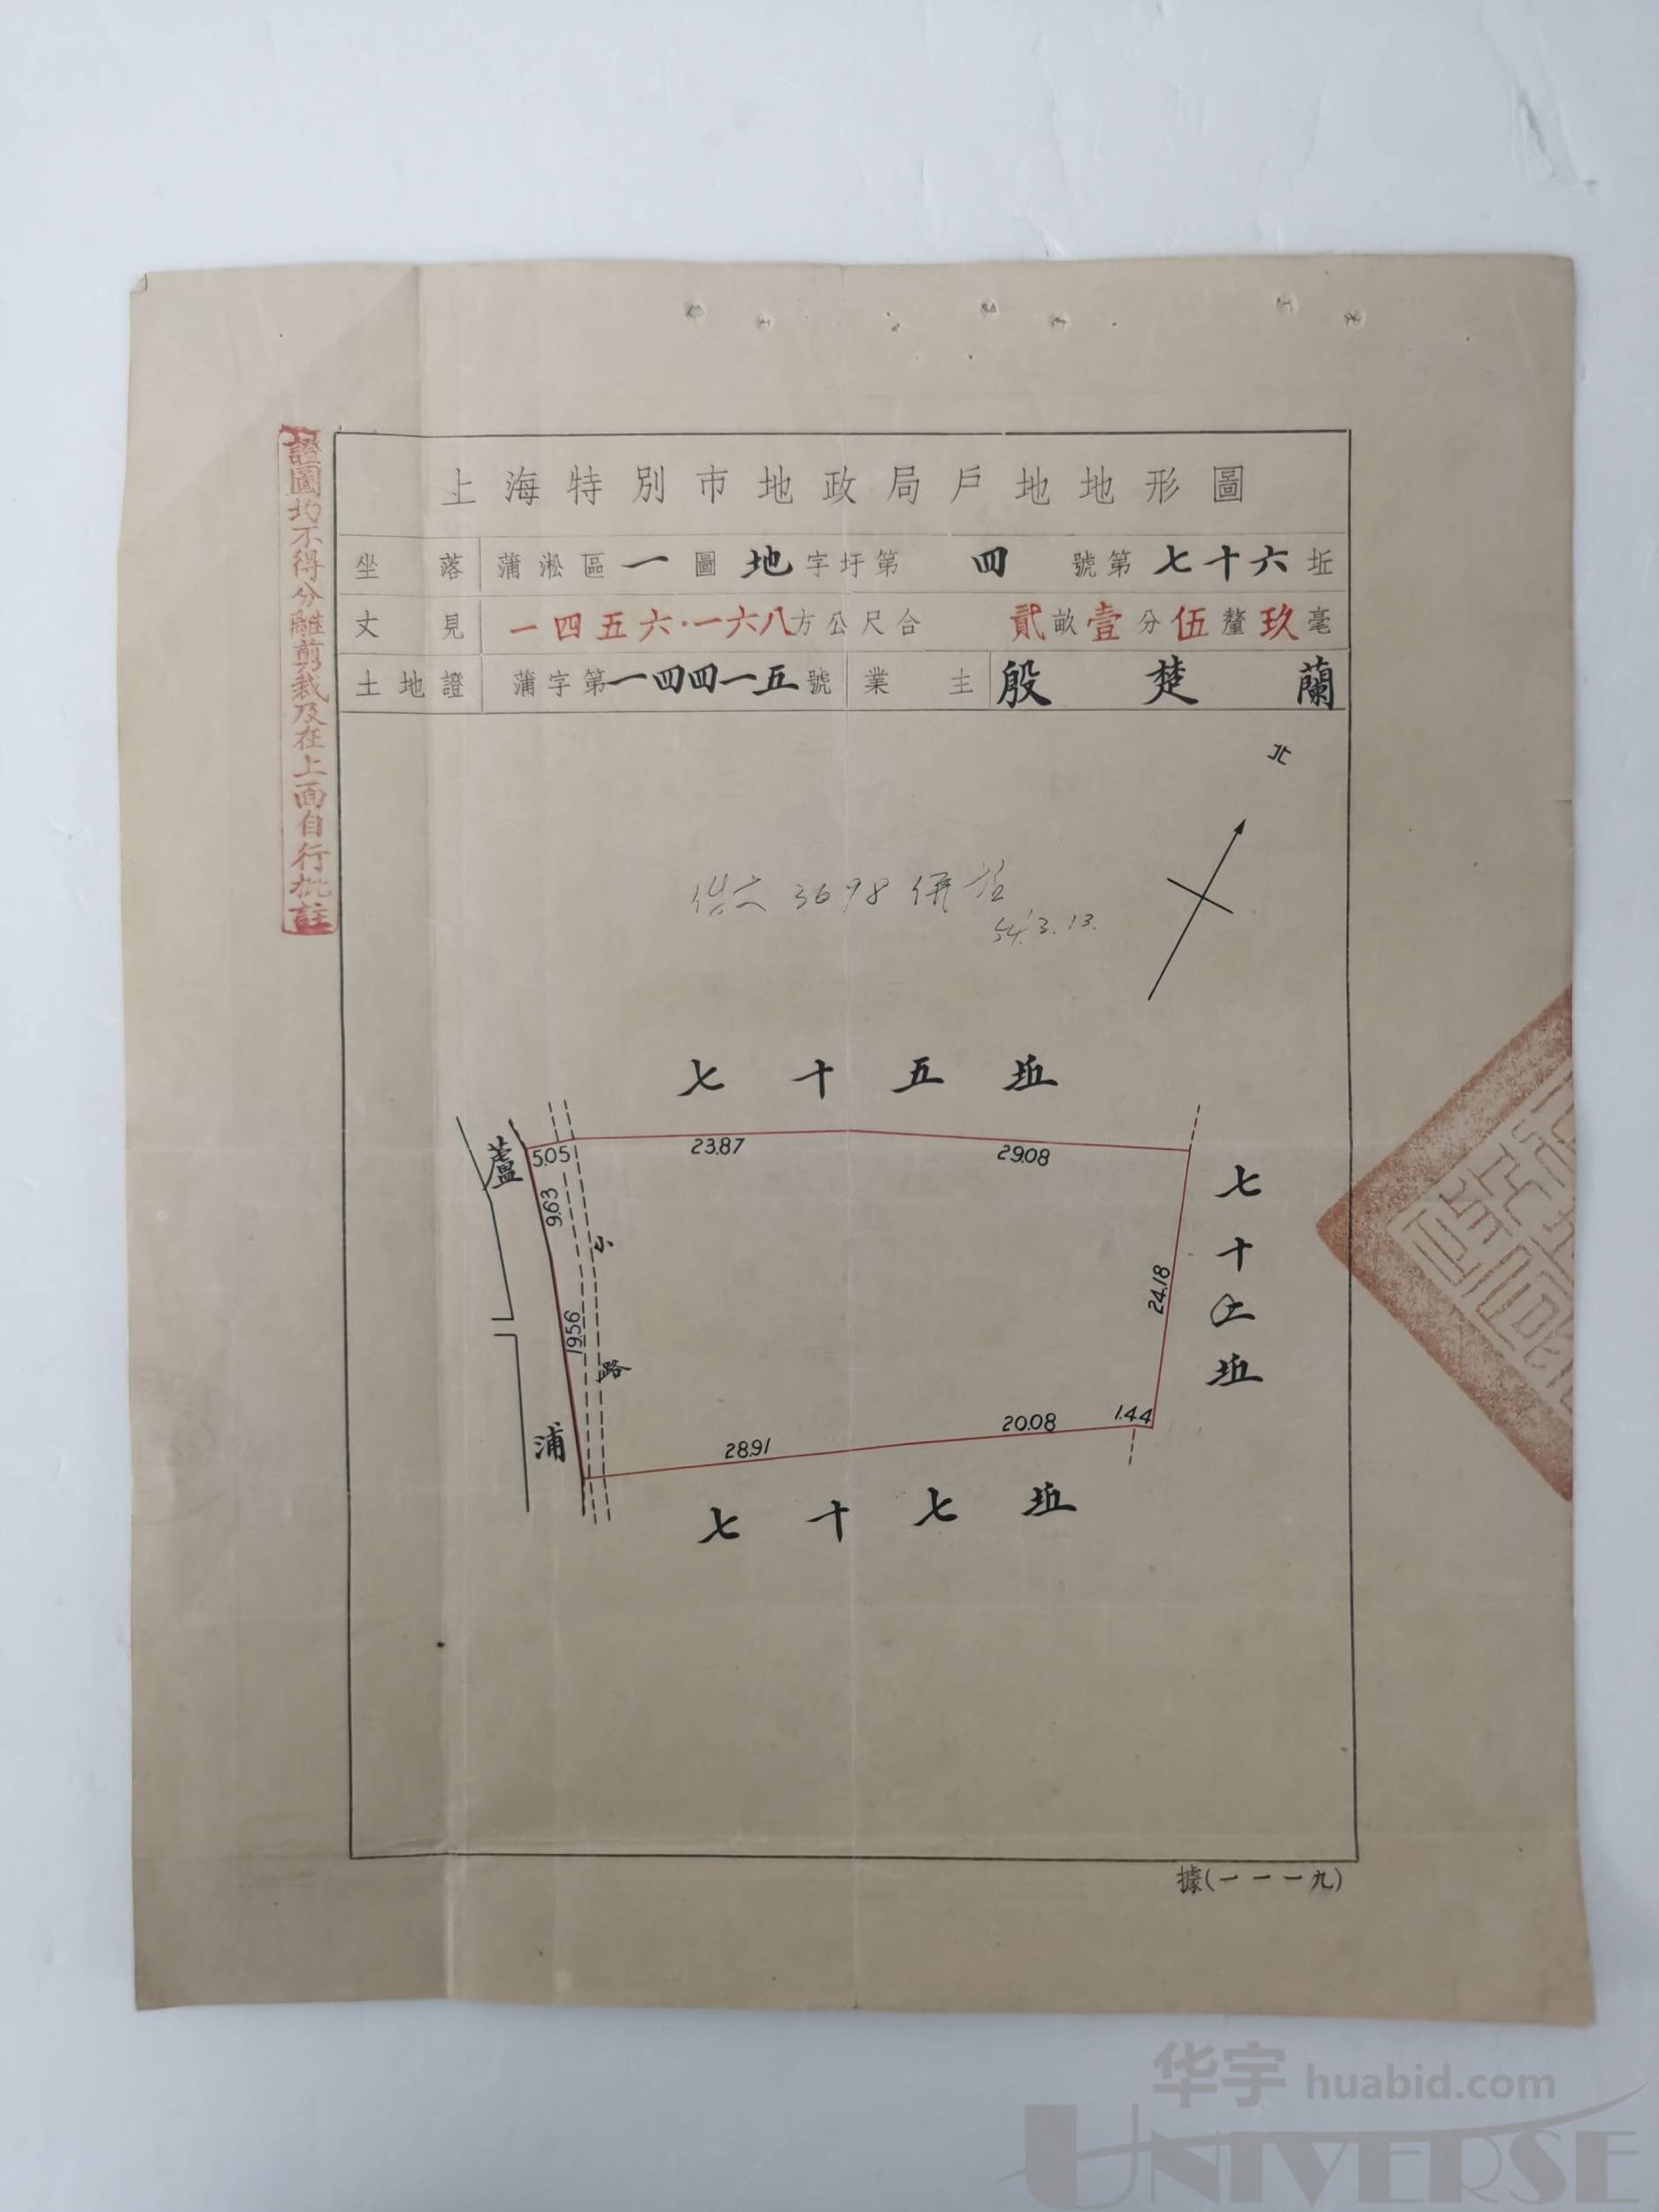 上海特別市地政局戶地地形圖
坐落 蒲淞區一圖地字圩第四號第七十六坵
丈見 一四五六·一六八方公尺合貳畝壹分伍釐玖毫
土地證 蒲字第一四四一五號 業主 殷楚蘭
證圖均不得分離剪裁及在上面自行批註
北
3698
54.3.13.
七十五坵
蘆浦
5.05
23.87
29.08
9.63
19.56
小路
24.18
七十 坵
28.91
20.08
1.44
七十七坵
據(一一一九)
华宇 huabid.com
UNIVERSE